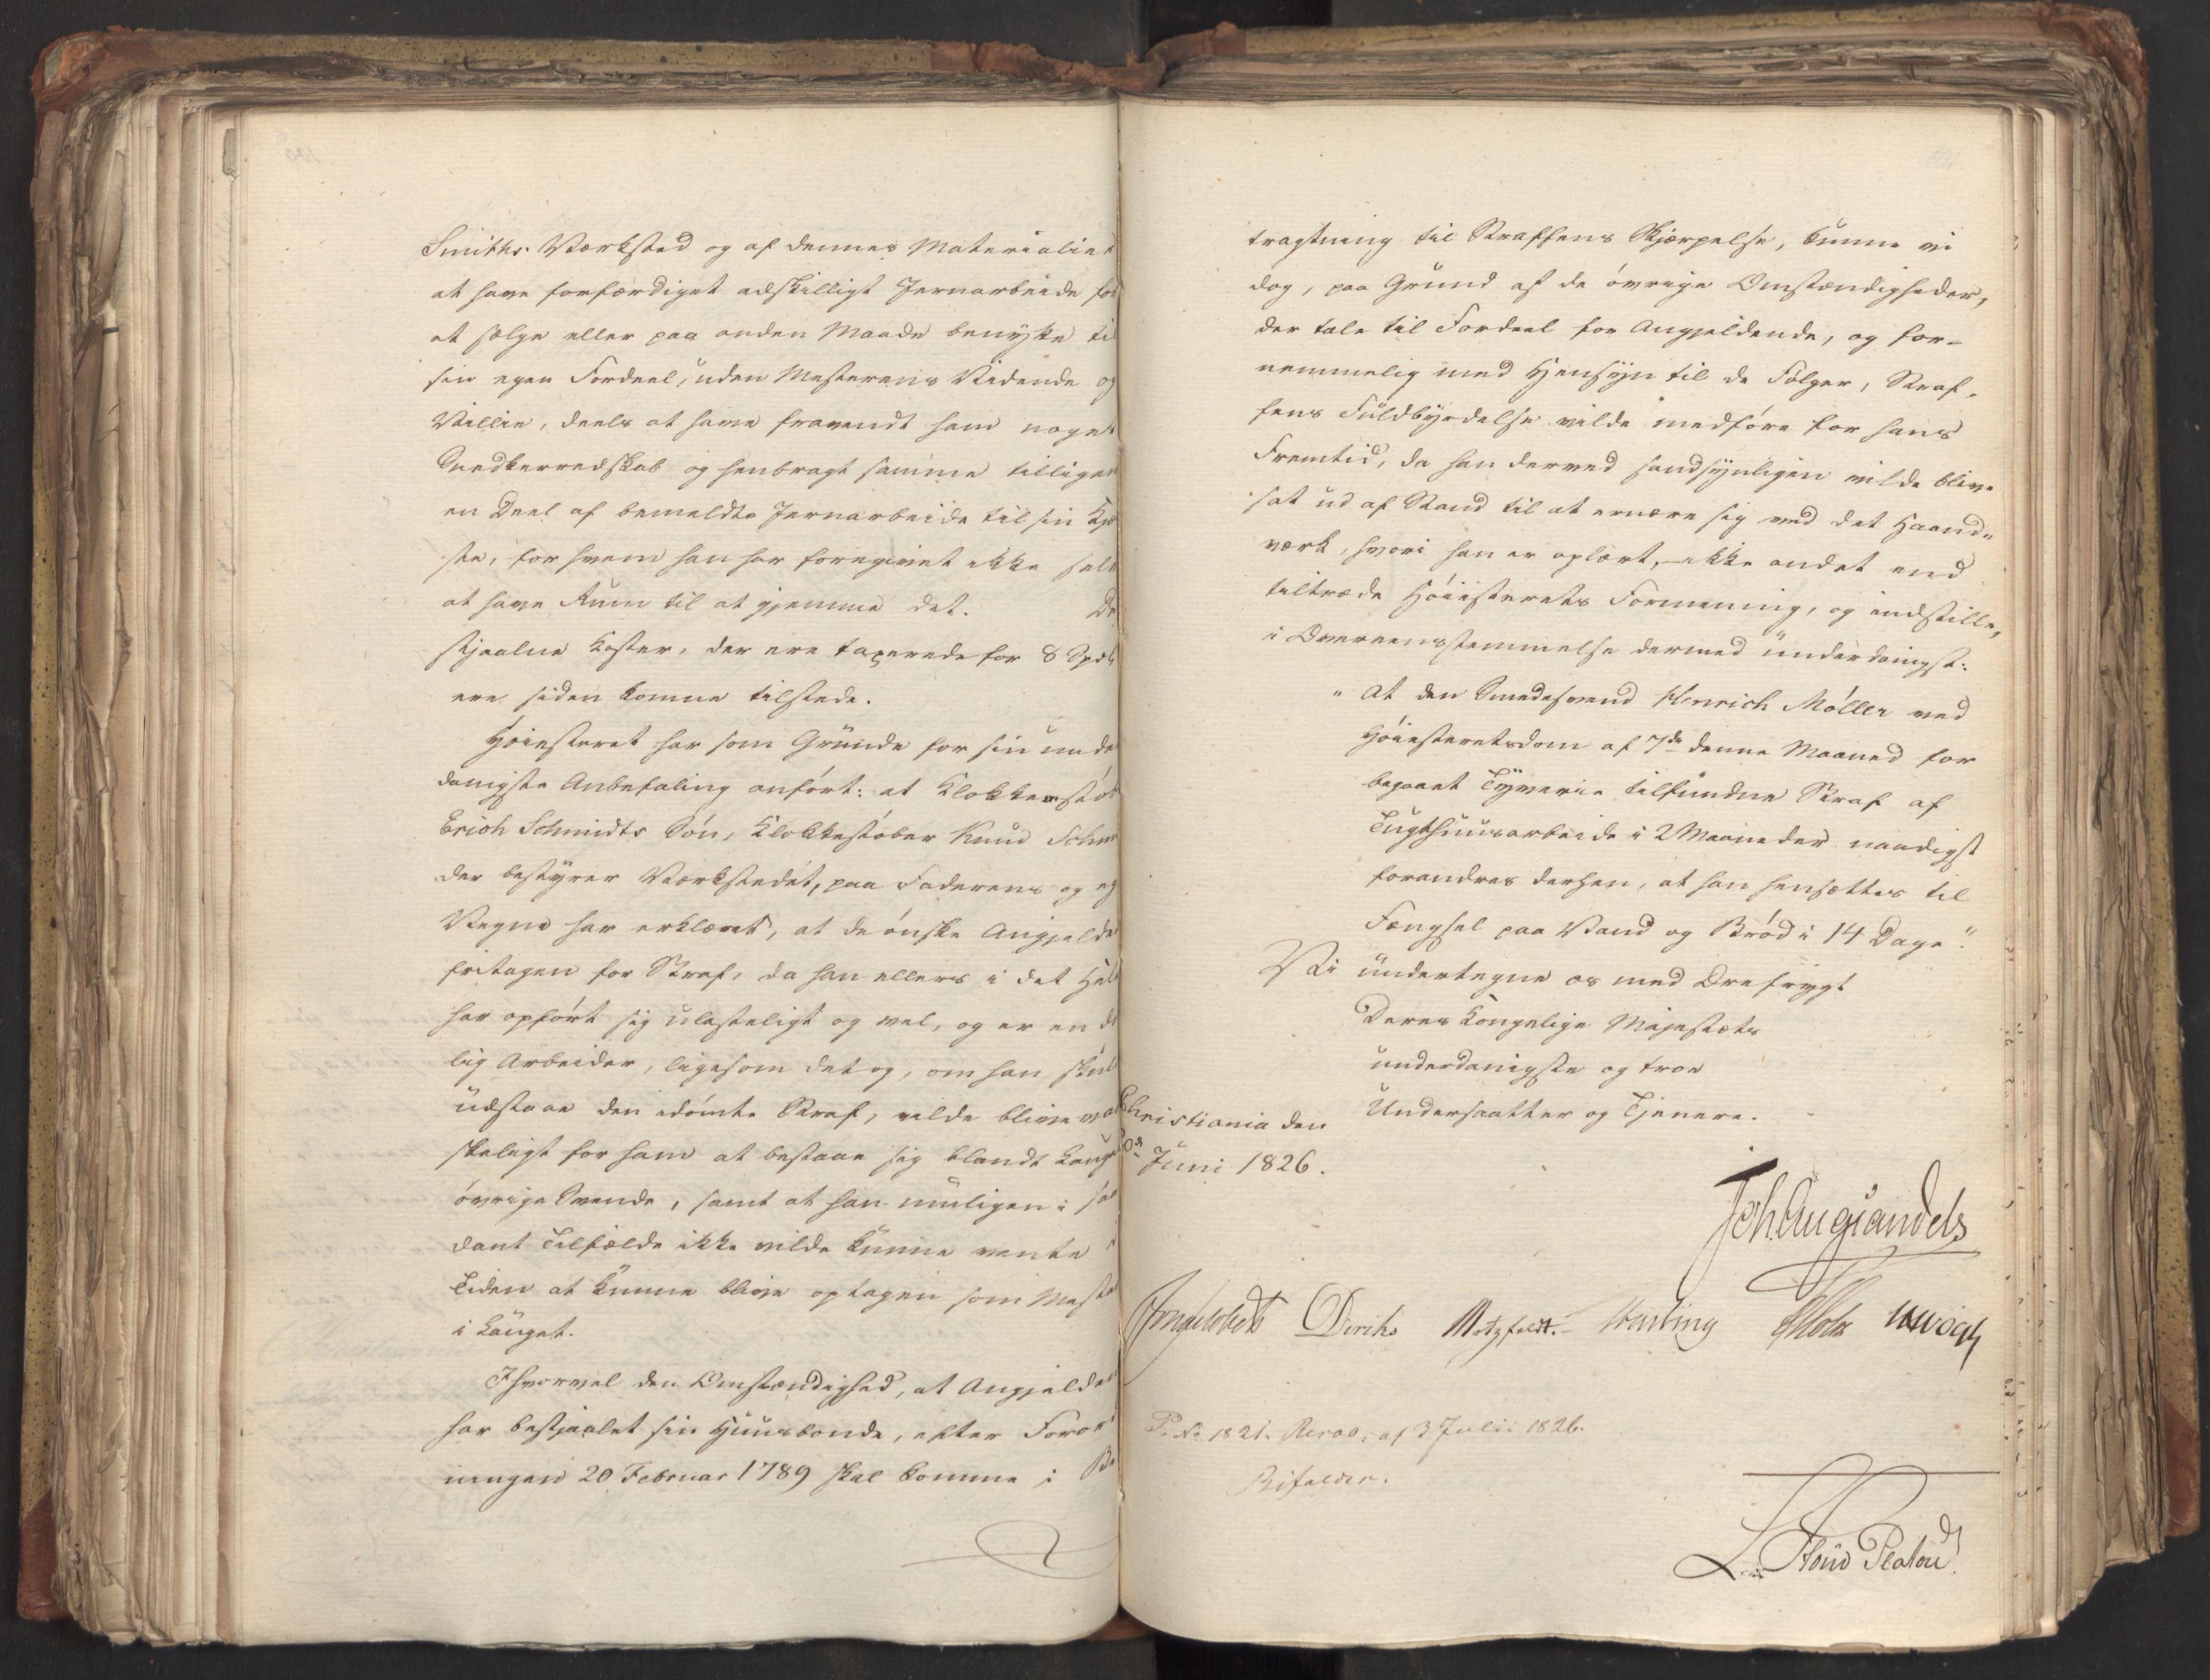 Smiths Værksted og af dennes Materialier
at have forfærdiget adskilligt Jernarbeide for
at sælge eller paa anden Maade benytte til
sin egen Fordeel, uden Mesterens Vidende og
Villie, deels at have fravendt ham noget
Snedkerredskab og henbragt samme tilligemed
en Deel af bemeldte Jernarbeide til sin Kjæ
ste, for hvem han har foregivet ikke selv
at have Rum til at gjemme det. De
stjaalne Koster, der ere taxerede for 8 Spdlr
ere siden komne tilstede.
Høiesteret har som Grunde for sin under
danigste Anbefaling anført: at Klokkestøb
Erich Schmidts Søn, Klokkestøber Knud Schm
der bestyrer Værkstedet, paa Faderens og eg
Vegne har erklæret, at de ønske Angjeldende
fritagen for Straf, da han ellers i det Hele
har opført sig ulasteligt og vel, og er en du
lig Arbeider, ligesom det og, om han skul
udstaae den idømte Straf, vilde blive van
skeligt for ham at bestaae sig blandt Laugets
øvrige Svende, samt at han muligen i saa
dant Tilfælde ikke vilde kunne vente i
Tiden at kunne blive optagen som Mester
i Lauget.
Ihvorvel den Omstændighed, at Angjeldende
har bestjaalet sin Huusbonde, efter Forord
ningen 20 Februar 1789 skal komme i Be
tragtning til Straffens Skjærpelse, kunne vi
dog, paa Grund af de øvrige Omstændigheder,
der tale til Fordeel for Angjeldende, og for-
nemmelig med Hensyn til de Følger, Straf-
fens Fuldbyrdelse vilde medføre for hans
Fremtid, da han derved sandsynligen vilde blive
sat ud af Stand til at ernære sig ved det Haand-
værk, hvori han er oplært, ikke andet end
tiltræde Høiesterets Formening, og indstille,
i Overeensstemmelse dermed underdanigst:
"At den Smedesvend Henrich Møller ved
Høiesteretsdom af 7de denne Maaned for
begaaet Tyverie tilfundne Straf af
Tugthuusarbeide i 2 Maaneder naadigst
forandres derhen, at han hensættes til
Fængsel paa Vand og Brød i 14 Dage".
Vi undertegne os med Ærefrygt
Deres Kongelige Majestæts
underdanigste og troe
Undersaatter og Tjenere.
Christiania den
Juni 1826.
Joh Aug Sandels
Diriks Motzfeldt. Holst
P. No 1821. Resol. af 3 Julii 1826.
Bifalder.
L. Stoud Platou